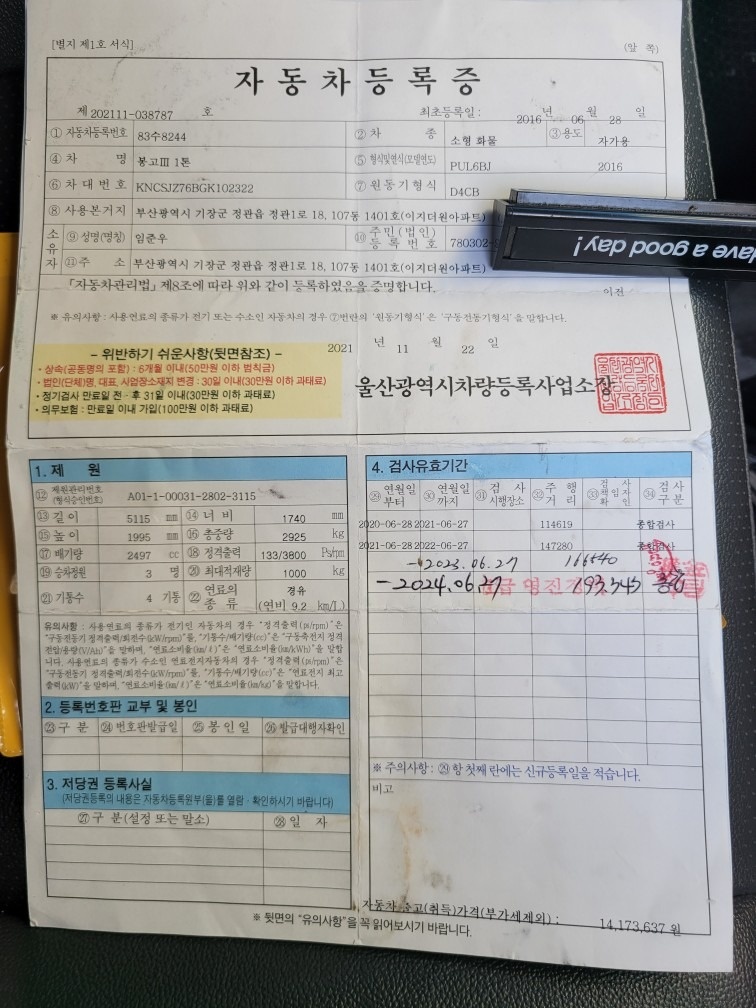 [별지 제1호 서식]
(앞 쪽)
자동차등록증
제 202111-038787 호
최초등록일 : 2016 년 06 월 28 일
① 자동차등록번호 83수8244 ② 차 종 소형 화물 ③ 용도 자가용
④ 차 명 봉고Ⅲ 1톤 ⑤ 형식및연식(모델연도) PUL6BJ 2016
⑥ 차대번호 KNCSJZ76BGK102322 ⑦ 원동기형식 D4CB
⑧ 사용본거지 부산광역시 기장군 정관읍 정관1로 18, 107동 1401호(이지더원아파트)
소유자 ⑨ 성명(명칭) 임준우 ⑩ 주민(법인)등록번호 780302-
⑪ 주 소 부산광역시 기장군 정관읍 정관1로 18, 107동 1401호(이지더원아파트)
「자동차관리법」 제8조에 따라 위와 같이 등록하였음을 증명합니다.
이전
※ 유의사항 : 사용연료의 종류가 전기 또는 수소인 자동차의 경우 ⑦번란의 '원동기형식'은 '구동전동기형식'을 말합니다.
2021 년 11 월 22 일
- 위반하기 쉬운사항(뒷면참조) -
· 상속(공동명의 포함) : 6개월 이내(50만원 이하 범칙금)
· 법인(단체)명, 대표, 사업장소재지 변경 : 30일 이내(30만원 이하 과태료)
· 정기검사 만료일 전 · 후 31일 이내(30만원 이하 과태료)
· 의무보험 : 만료일 이내 가입(100만원 이하 과태료)
울산광역시차량등록사업소장
have a good day!
1. 제 원
⑫ 제원관리번호 (형식승인번호) A01-1-00031-2802-3115
⑬ 길이 5115 mm ⑭ 너비 1740 mm
⑮ 높이 1995 mm ⑯ 총중량 2925 kg
⑰ 배기량 2497 cc ⑱ 정격출력 133/3800 Ps/rpm
⑲ 승차정원 3 명 ⑳ 최대적재량 1000 kg
㉑ 기통수 4 기통 ㉒ 연료의 종류 경유 (연비 9.2 km/L)
유의사항 : 사용연료의 종류가 전기인 자동차의 경우 "정격출력(ps/rpm)"은
"구동전동기 정격출력/회전수(kW/rpm)"를, "기통수/배기량(cc)"은 "구동축전지 정격
전압/용량(V/Ah)"을 말하며, "연료소비율(km/ℓ)"은 "연료소비율(km/kWh)"을 말합
니다. 사용연료의 종류가 수소인 연료전지자동차의 경우 "정격출력(ps/rpm)"은
"구동전동기 정격출력/회전수(kW/rpm)"를, "기통수/배기량(cc)"은 "연료전지 최고
출력(kW)"을 말하며, "연료소비율(km/ℓ)"은 "연료소비율(km/kg)"을 말합니다.
2. 등록번호판 교부 및 봉인
㉓ 구 분 ㉔ 번호판발급일 ㉕ 봉인일 ㉖ 발급대행자확인
3. 저당권 등록사실
(저당권등록의 내용은 자동차등록원부(을)를 열람 · 확인하시기 바랍니다)
㉗ 구 분(설정 또는 말소) ㉘ 일 자
4. 검사유효기간
㉙ 연월일부터 ㉚ 연월일까지 ㉛ 검사시행장소 ㉜ 주행거리 ㉝ 검사책임자확인 ㉞ 검사구분
2020-06-28 2021-06-27 114619 종합검사
2021-06-28 2022-06-27 147280 종합검사
~2023.06.27 166540
~2024.06.27 193,545 종합
※ 주의사항 : ㉙ 항 첫째 란에는 신규등록일을 적습니다.
비고
자동차 출고(취득)가격(부가세제외) : 14,173,637 원
※ 뒷면의 "유의사항"을 꼭 읽어보시기 바랍니다.